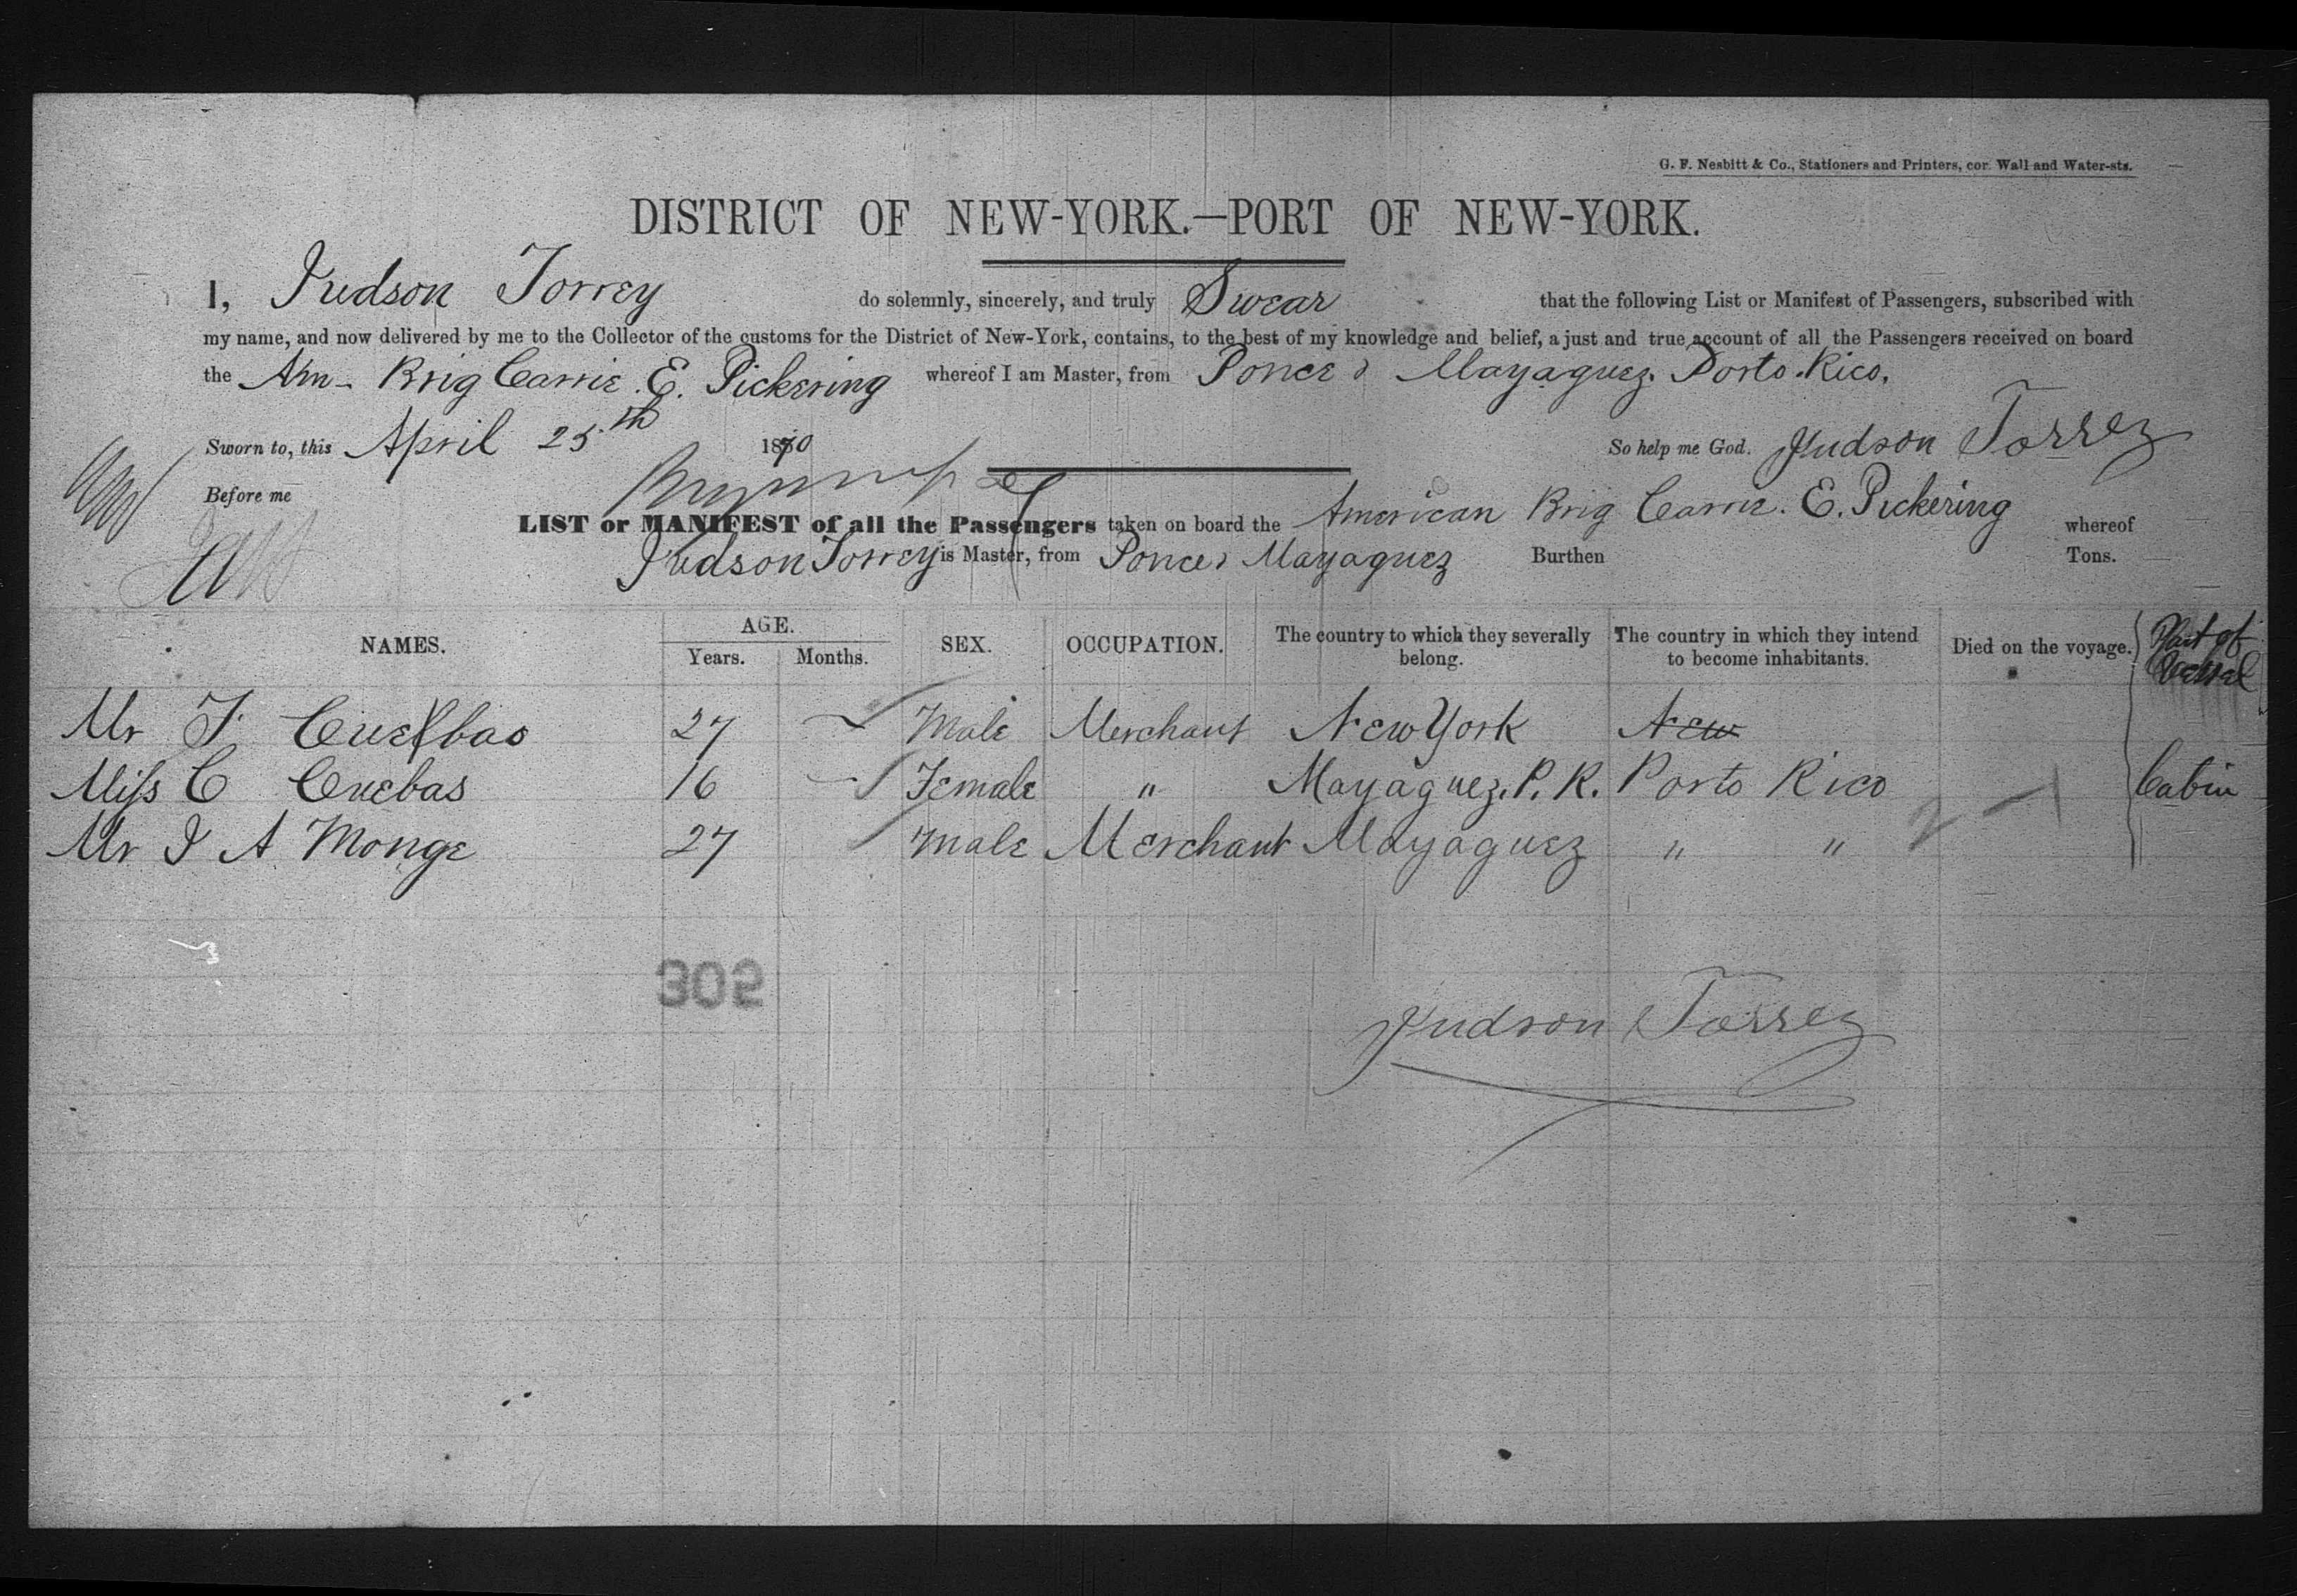 G. F. Nesbitt & Co., Stationers and Printers, cor. Wall and Water-sts.
DISTRICT OF NEW-YORK.—PORT OF NEW-YORK.
I, Judson Torrey do solemnly, sincerely, and truly Swear that the following List or Manifest of Passengers, subscribed with
my name, and now delivered by me to the Collector of the customs for the District of New-York, contains, to the best of my knowledge and belief, a just and true account of all the Passengers received on board
the Am- Brig Carrie. E. Pickering whereof I am Master, from Ponce & Mayaguez. Porto. Rico.
Sworn to, this April 25th 1870 So help me God. Judson Torrey
Before me
LIST or MANIFEST of all the Passengers taken on board the American Brig Carrie. E. Pickering whereof
Judson Torrey is Master, from Ponce & Mayaguez Burthen Tons.
NAMES. AGE. Years. Months. SEX. OCCUPATION. The country to which they severally belong. The country in which they intend to become inhabitants. Died on the voyage. Part of Vessel
Mr F. Cuebas 27 Male Merchant New York New
Miss C Cuebas 16 Female " Mayaguez. P. R. Porto Rico Cabin
Mr J A Monge 27 Male Merchant Mayaguez " "
302
Judson Torrey